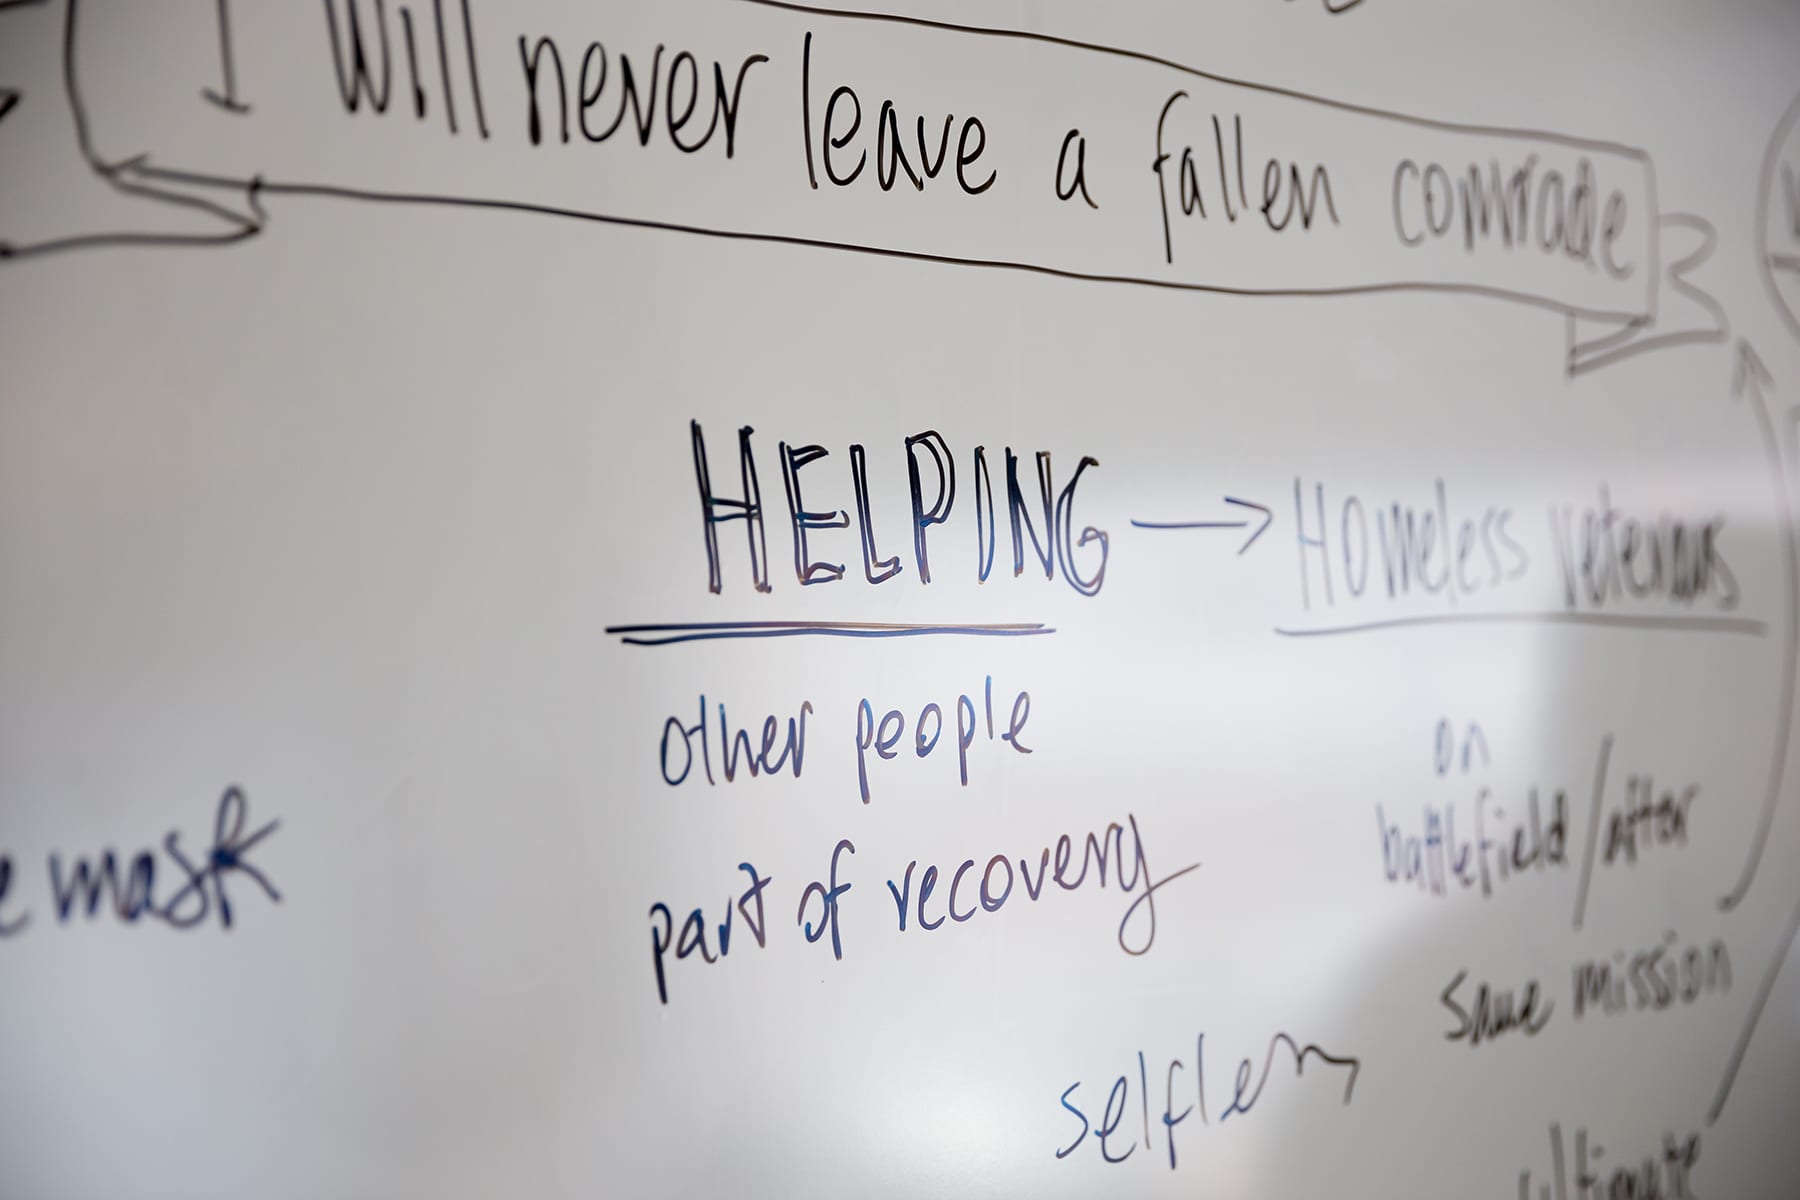 I will never leave a fallen comrade
HELPING → Homeless veterans
other people
part of recovery
on
battlefield/after
same mission
selfless
ultimate
mask